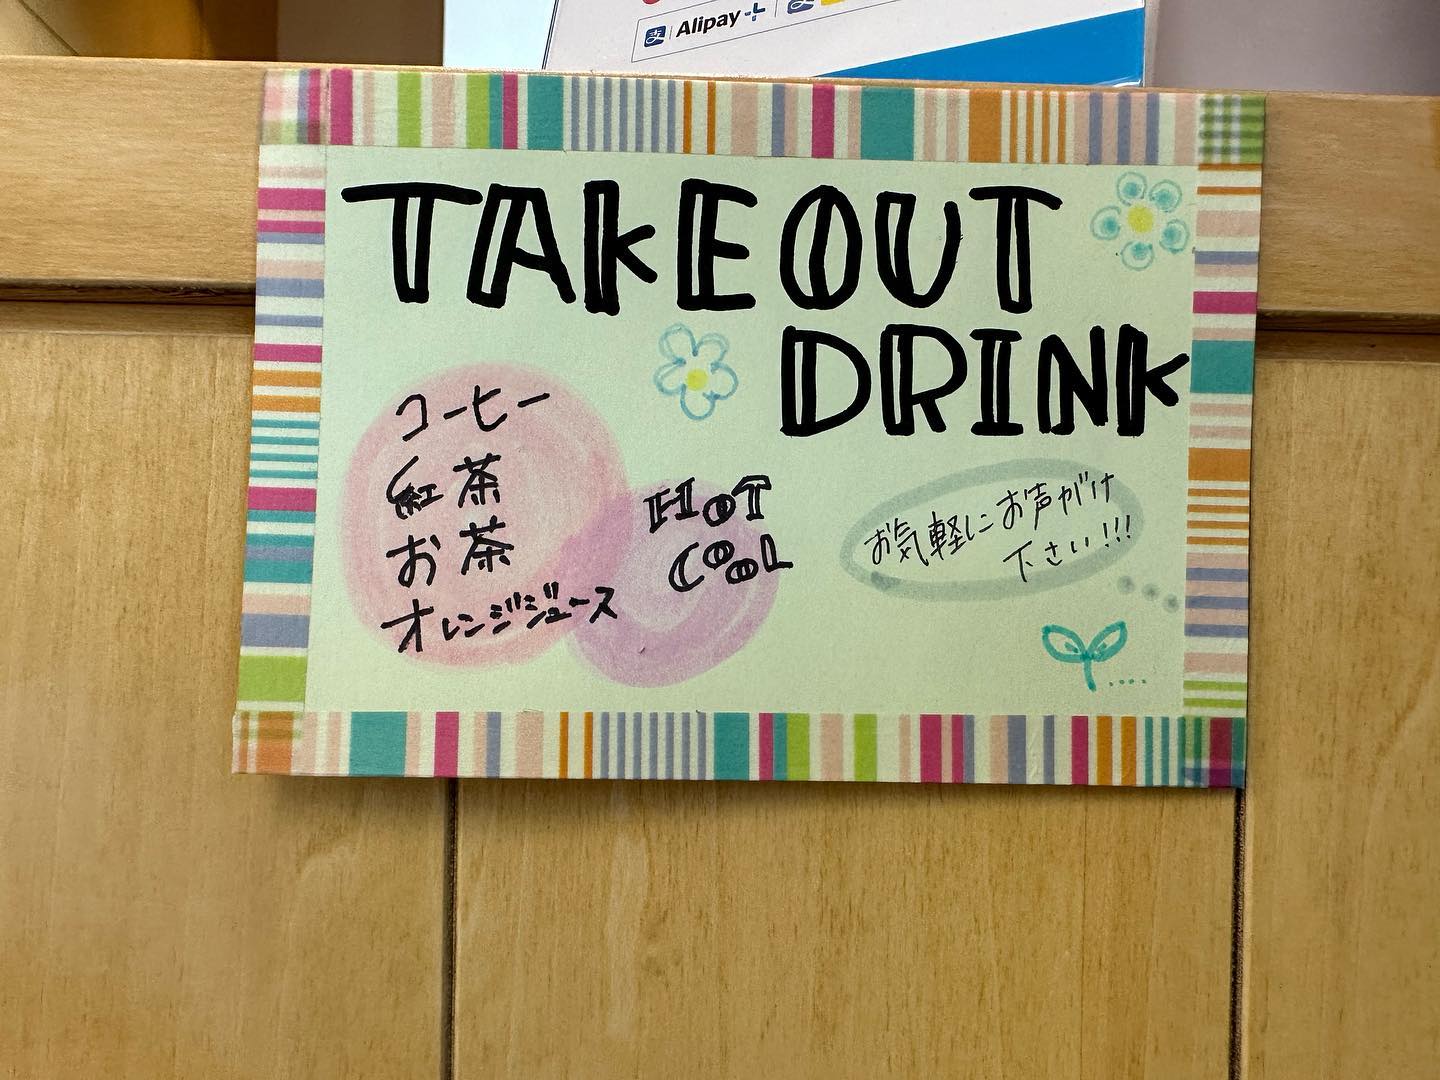 Alipay+
TAKEOUT
DRINK
コーヒー
紅茶
お茶
オレンジジュース
HOT
COOL
お気軽にお声がけ
下さい!!!